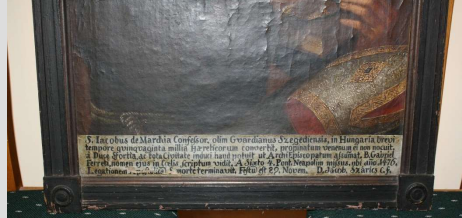 S. Iacobus de Marchia Confessor, olim Guardianus Szegediensis, in Hungaria brevi
tempore quinquaginta millia Hæreticorum convertit, propinatum venenum ei non nocuit,
a Duce Sfortia, ac tota Civitate induci haud potuit ut ArchiEpiscopatum assumat, B. Gabriel
Ferreti, nomen ejus in Ecclesia scriptum vidit, A Sixto 4. Pont. Neapolim missus, obi año 1476.
Legationem morte terminavit. Festū est 29. Novem. D. Jacob. Szarics C. f.